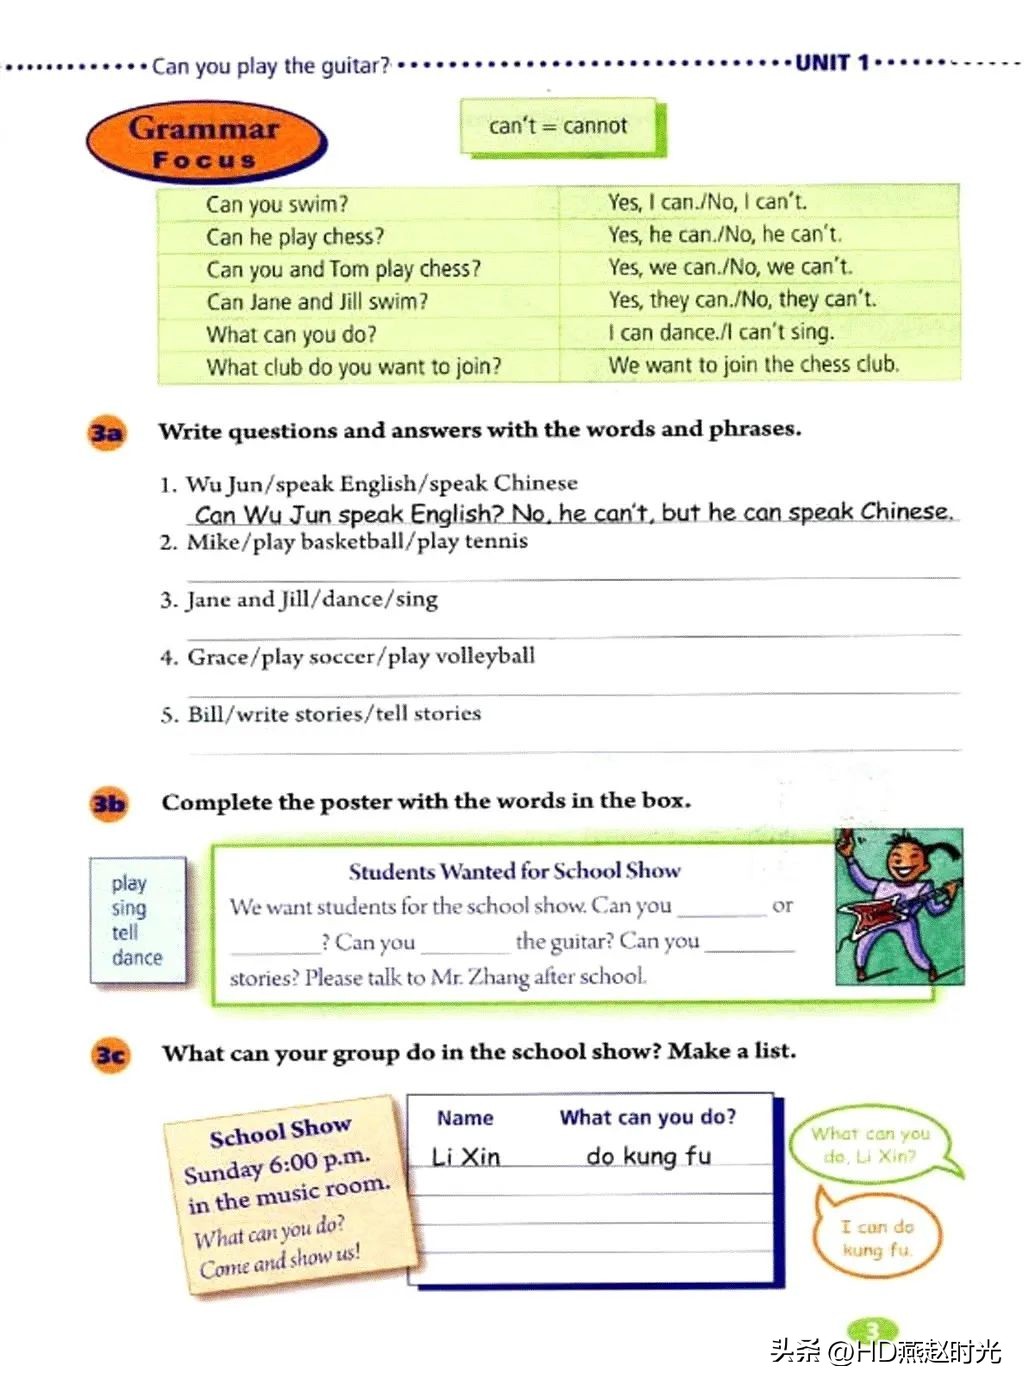 Can you play the guitar?
UNIT 1
Grammar
Focus
can't = cannot
Can you swim? Yes, I can./No, I can't.
Can he play chess? Yes, he can./No, he can't.
Can you and Tom play chess? Yes, we can./No, we can't.
Can Jane and Jill swim? Yes, they can./No, they can't.
What can you do? I can dance./I can't sing.
What club do you want to join? We want to join the chess club.
3a Write questions and answers with the words and phrases.
1. Wu Jun/speak English/speak Chinese
Can Wu Jun speak English? No, he can't, but he can speak Chinese.
2. Mike/play basketball/play tennis
3. Jane and Jill/dance/sing
4. Grace/play soccer/play volleyball
5. Bill/write stories/tell stories
3b Complete the poster with the words in the box.
play
sing
tell
dance
Students Wanted for School Show
We want students for the school show. Can you ________ or
________? Can you ________ the guitar? Can you ________
stories? Please talk to Mr. Zhang after school.
3c What can your group do in the school show? Make a list.
School Show
Sunday 6:00 p.m.
in the music room.
What can you do?
Come and show us!
Name What can you do?
Li Xin do kung fu
What can you
do, Li Xin?
I can do
kung fu.
3
头条 @HD燕赵时光